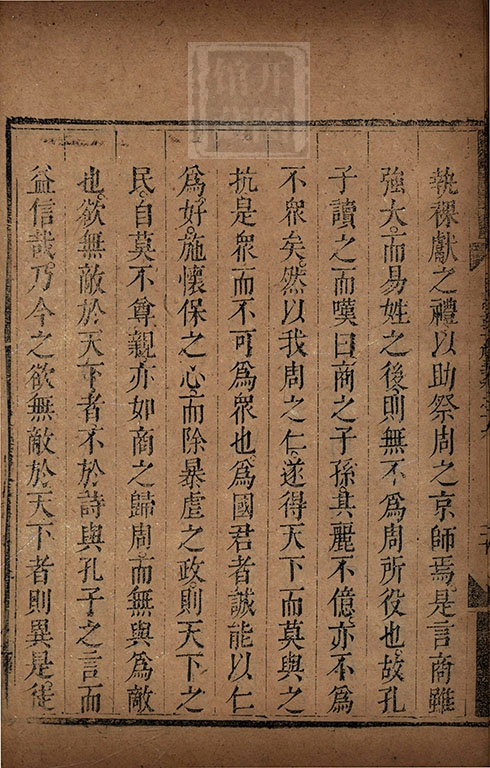 執祼獻之禮以助祭周之京師焉是言商雖
強大而易姓之後則無不爲周所役也故孔
子讀之而嘆曰商之子孫其麗不億亦不爲
不衆矣然以我周之仁遂得天下而莫與之
抗是衆而不可爲衆也爲國君者誠能以仁
爲好施懷保之心而除暴虐之政則天下之
民自莫不尊親亦如商之歸周而無與爲敵
也欲無敵於天下者不於詩與孔子之言而
益信哉乃今之欲無敵於天下者則異是徒